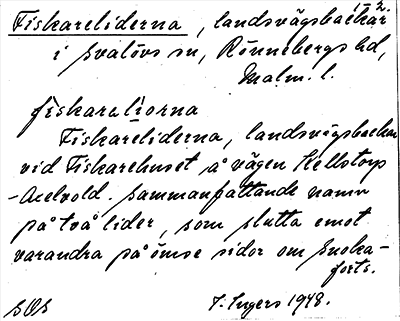 1 2.
Fiskareliderna, landsvägsbackar
i Svalövs sn, Rönnebergs hd,
Malm. l.
fiskaraliorna
Fiskareliderna, landsvägsbackar
vid Fiskarehuset å vägen Hellstorp
-Axelvold. Sammanfattande namn
på två lider, som slutta emot
varandra på ömse sidor om Snoka-
forts.
SOS
J. Ingers 1948.